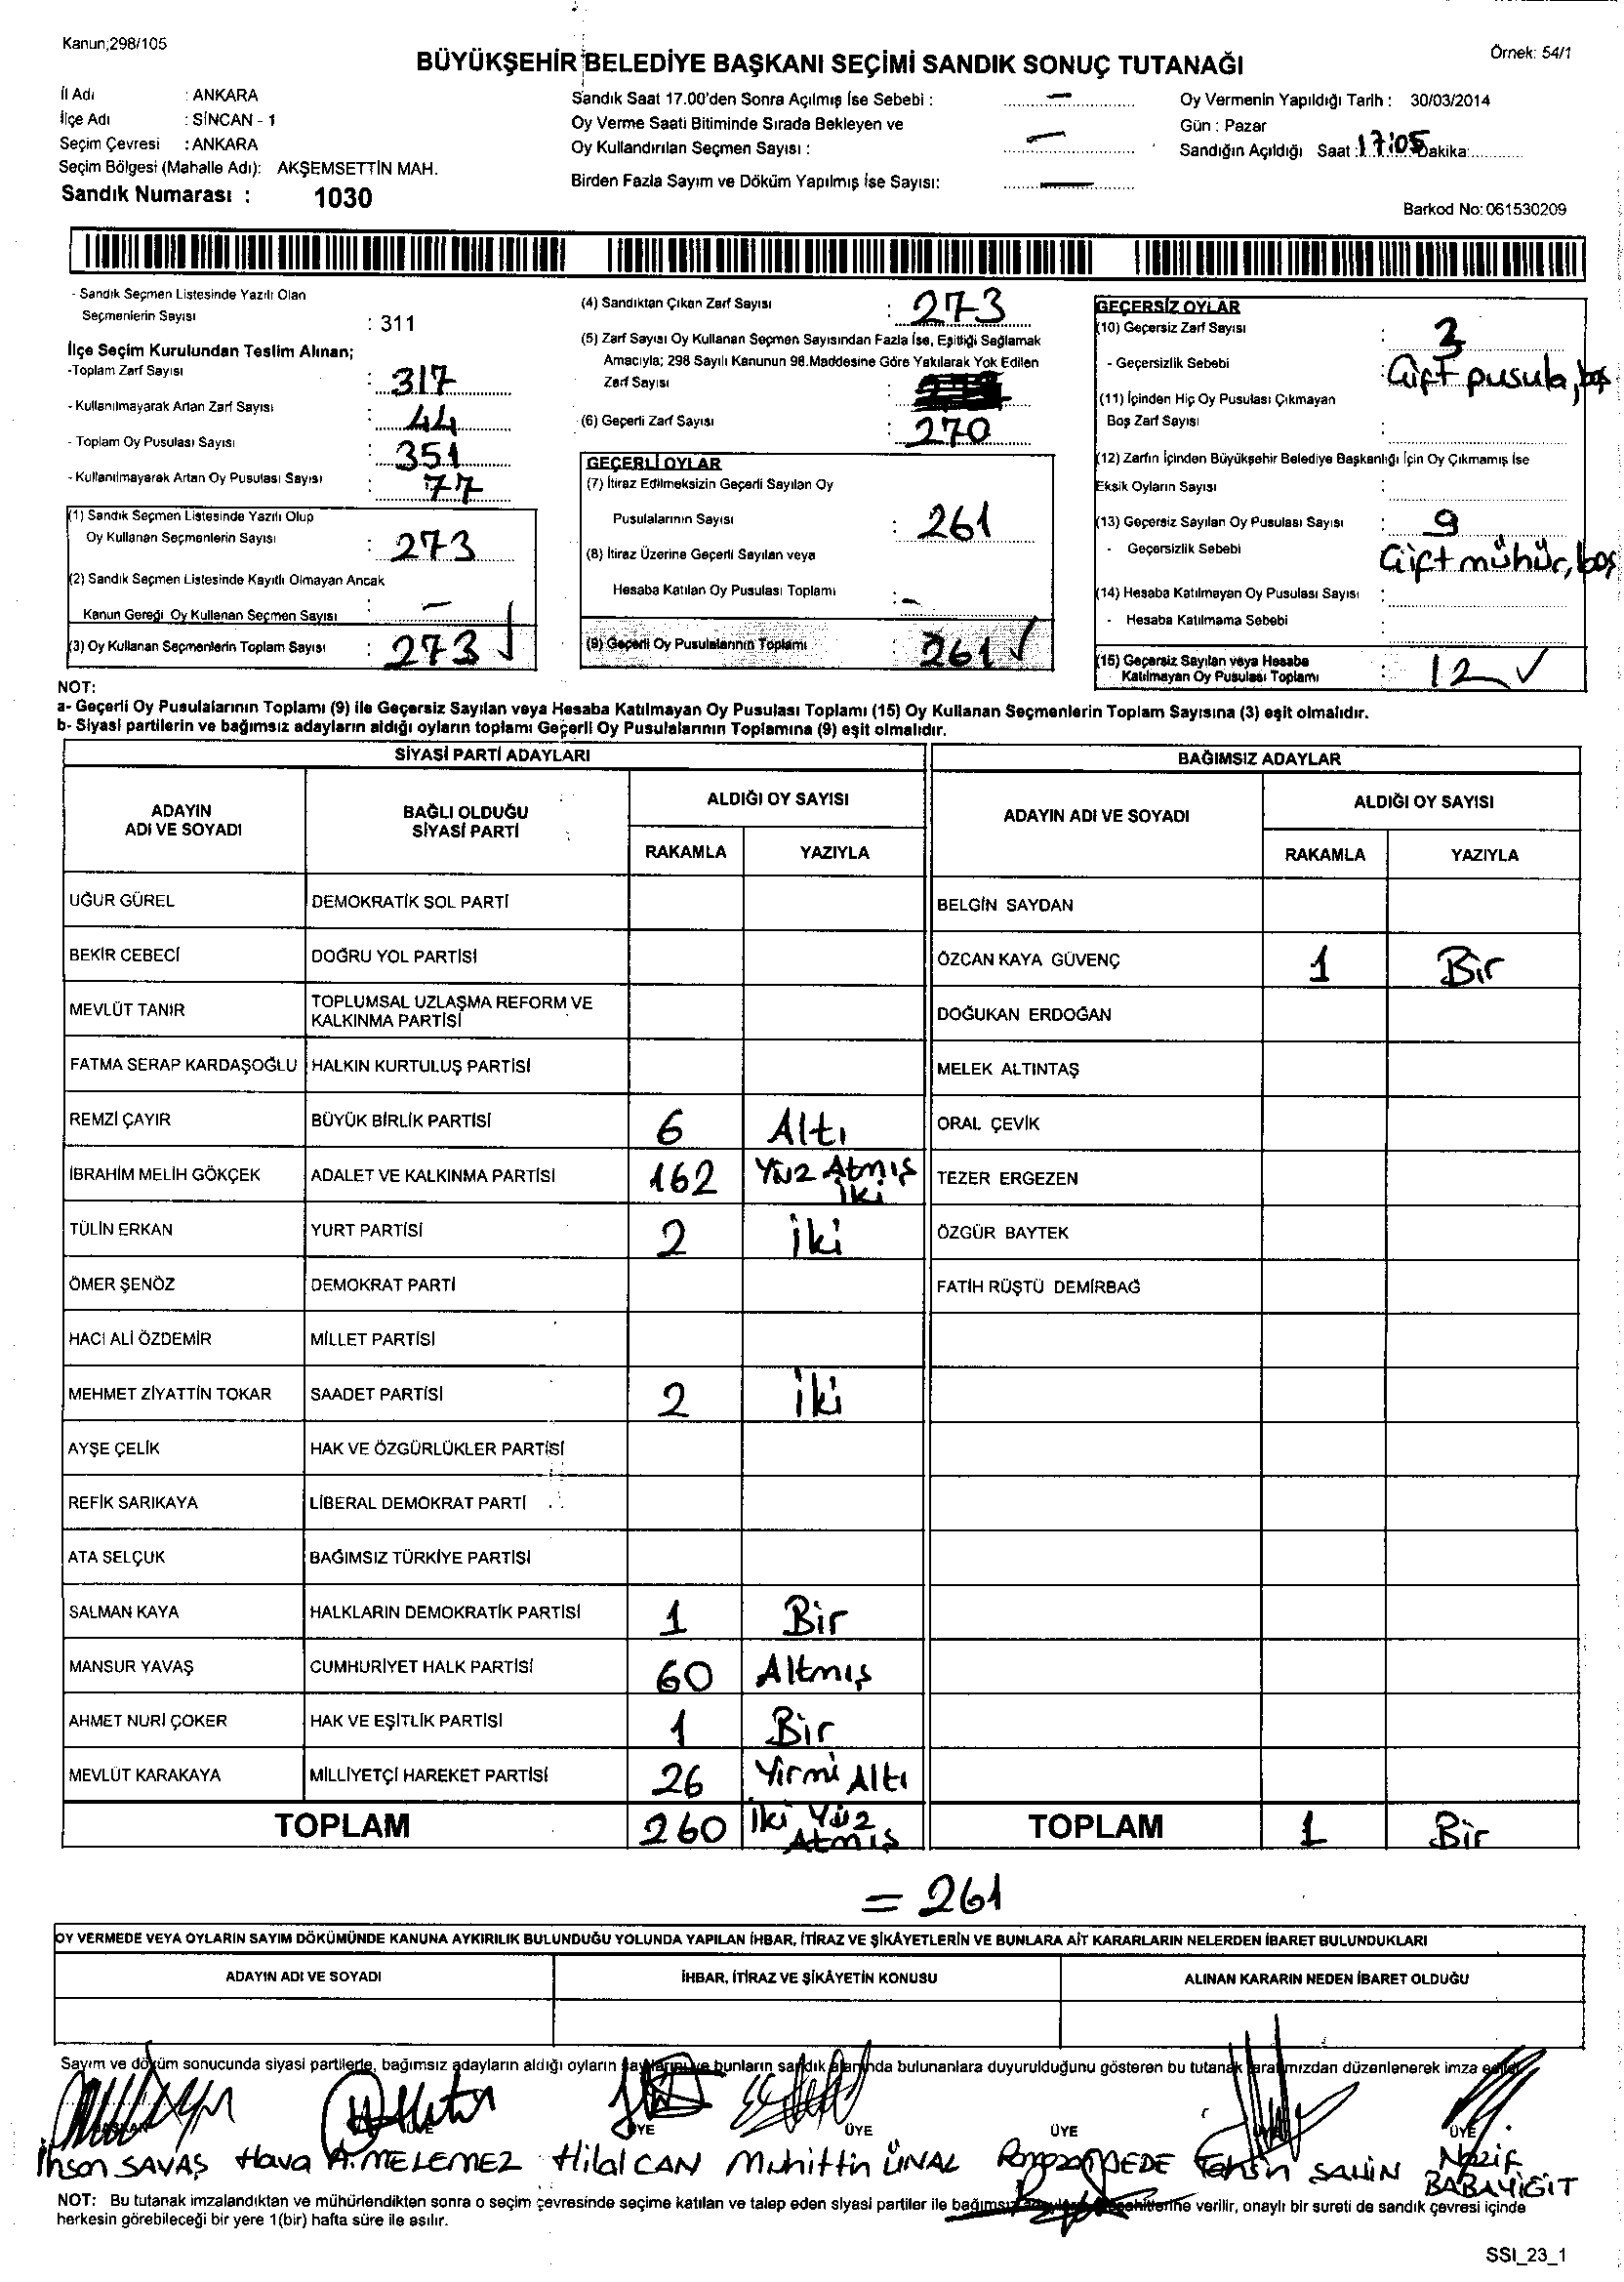 Kanun;298/105
Örnek: 54/1
BÜYÜKŞEHİR BELEDİYE BAŞKANI SEÇİMİ SANDIK SONUÇ TUTANAĞI
İl Adı : ANKARA
İlçe Adı : SİNCAN - 1
Seçim Çevresi : ANKARA
Seçim Bölgesi (Mahalle Adı): AKŞEMSETTİN MAH.
Sandık Numarası : 1030
Sandık Saat 17.00'den Sonra Açılmış İse Sebebi : —
Oy Verme Saati Bitiminde Sırada Bekleyen ve
Oy Kullandırılan Seçmen Sayısı : —
Birden Fazla Sayım ve Döküm Yapılmış İse Sayısı: —
Oy Vermenin Yapıldığı Tarih : 30/03/2014
Gün : Pazar
Sandığın Açıldığı Saat : 17:05 Dakika:
Barkod No: 061530209
- Sandık Seçmen Listesinde Yazılı Olan
Seçmenlerin Sayısı : 311
İlçe Seçim Kurulundan Teslim Alınan;
-Toplam Zarf Sayısı : 317
- Kullanılmayarak Artan Zarf Sayısı : 44
- Toplam Oy Pusulası Sayısı : 351
- Kullanılmayarak Artan Oy Pusulası Sayısı : 77
(1) Sandık Seçmen Listesinde Yazılı Olup
Oy Kullanan Seçmenlerin Sayısı : 273
(2) Sandık Seçmen Listesinde Kayıtlı Olmayan Ancak
Kanun Gereği Oy Kullanan Seçmen Sayısı : —
(3) Oy Kullanan Seçmenlerin Toplam Sayısı : 273 ✓
(4) Sandıktan Çıkan Zarf Sayısı : 273
(5) Zarf Sayısı Oy Kullanan Seçmen Sayısından Fazla İse, Eşitliği Sağlamak
Amacıyla; 298 Sayılı Kanunun 98.Maddesine Göre Yakılarak Yok Edilen
Zarf Sayısı :
(6) Geçerli Zarf Sayısı : 270
GEÇERLİ OYLAR
(7) İtiraz Edilmeksizin Geçerli Sayılan Oy
Pusulalarının Sayısı : 261
(8) İtiraz Üzerine Geçerli Sayılan veya
Hesaba Katılan Oy Pusulası Toplamı : -
(9) Geçerli Oy Pusulalarının Toplamı : 261 ✓
GEÇERSİZ OYLAR
(10) Geçersiz Zarf Sayısı : 3
- Geçersizlik Sebebi : Çift pusula, boş
(11) İçinden Hiç Oy Pusulası Çıkmayan
Boş Zarf Sayısı :
(12) Zarfın İçinden Büyükşehir Belediye Başkanlığı İçin Oy Çıkmamış İse
Eksik Oyların Sayısı :
(13) Geçersiz Sayılan Oy Pusulası Sayısı : 9
- Geçersizlik Sebebi Çift mühür, boş
(14) Hesaba Katılmayan Oy Pusulası Sayısı :
- Hesaba Katılmama Sebebi :
(15) Geçersiz Sayılan veya Hesaba
Katılmayan Oy Pusulası Toplamı : 12 ✓
NOT:
a- Geçerli Oy Pusulalarının Toplamı (9) ile Geçersiz Sayılan veya Hesaba Katılmayan Oy Pusulası Toplamı (15) Oy Kullanan Seçmenlerin Toplam Sayısına (3) eşit olmalıdır.
b- Siyasi partilerin ve bağımsız adayların aldığı oyların toplamı Geçerli Oy Pusulalarının Toplamına (9) eşit olmalıdır.
SİYASİ PARTİ ADAYLARI
ADAYIN
ADI VE SOYADI
BAĞLI OLDUĞU
SİYASİ PARTİ
ALDIĞI OY SAYISI
RAKAMLA YAZIYLA
UĞUR GÜREL DEMOKRATİK SOL PARTİ
BEKİR CEBECİ DOĞRU YOL PARTİSİ
MEVLÜT TANIR TOPLUMSAL UZLAŞMA REFORM VE
KALKINMA PARTİSİ
FATMA SERAP KARDAŞOĞLU HALKIN KURTULUŞ PARTİSİ
REMZİ ÇAYIR BÜYÜK BİRLİK PARTİSİ 6 Altı
İBRAHİM MELİH GÖKÇEK ADALET VE KALKINMA PARTİSİ 162 Yüz Atmış
iki
TÜLİN ERKAN YURT PARTİSİ 2 iki
ÖMER ŞENÖZ DEMOKRAT PARTİ
HACI ALİ ÖZDEMİR MİLLET PARTİSİ
MEHMET ZİYATTİN TOKAR SAADET PARTİSİ 2 iki
AYŞE ÇELİK HAK VE ÖZGÜRLÜKLER PARTİSİ
REFİK SARIKAYA LİBERAL DEMOKRAT PARTİ
ATA SELÇUK BAĞIMSIZ TÜRKİYE PARTİSİ
SALMAN KAYA HALKLARIN DEMOKRATİK PARTİSİ 1 Bir
MANSUR YAVAŞ CUMHURİYET HALK PARTİSİ 60 Altmış
AHMET NURİ ÇOKER HAK VE EŞİTLİK PARTİSİ 1 Bir
MEVLÜT KARAKAYA MİLLİYETÇİ HAREKET PARTİSİ 26 Yirmi Altı
TOPLAM 260 İki Yüz
Atmış
BAĞIMSIZ ADAYLAR
ADAYIN ADI VE SOYADI
ALDIĞI OY SAYISI
RAKAMLA YAZIYLA
BELGİN SAYDAN
ÖZCAN KAYA GÜVENÇ 1 Bir
DOĞUKAN ERDOĞAN
MELEK ALTINTAŞ
ORAL ÇEVİK
TEZER ERGEZEN
ÖZGÜR BAYTEK
FATİH RÜŞTÜ DEMİRBAĞ
TOPLAM 1 Bir
= 261
OY VERMEDE VEYA OYLARIN SAYIM DÖKÜMÜNDE KANUNA AYKIRILIK BULUNDUĞU YOLUNDA YAPILAN İHBAR, İTİRAZ VE ŞİKÂYETLERİN VE BUNLARA AİT KARARLARIN NELERDEN İBARET BULUNDUKLARI
ADAYIN ADI VE SOYADI İHBAR, İTİRAZ VE ŞİKÂYETİN KONUSU ALINAN KARARIN NEDEN İBARET OLDUĞU
Sayım ve döküm sonucunda siyasi partilerle, bağımsız adayların aldığı oyların bunların sandık alanında bulunanlara duyurulduğunu gösteren bu tutanak tarafımızdan düzenlenerek imza
ÜYE ÜYE ÜYE ÜYE
İhsan SAVAŞ Hava A. MELEMEZ Hilal CAN Muhittin ÜNAL Ramazan DEDE Tahsin SAHİN Nazif
BABAYİĞİT
NOT: Bu tutanak imzalandıktan ve mühürlendikten sonra o seçim çevresinde seçime katılan ve talep eden siyasi partiler ile bağımsız verilir, onaylı bir sureti de sandık çevresi içinde
herkesin görebileceği bir yere 1(bir) hafta süre ile asılır.
SSI_23_1